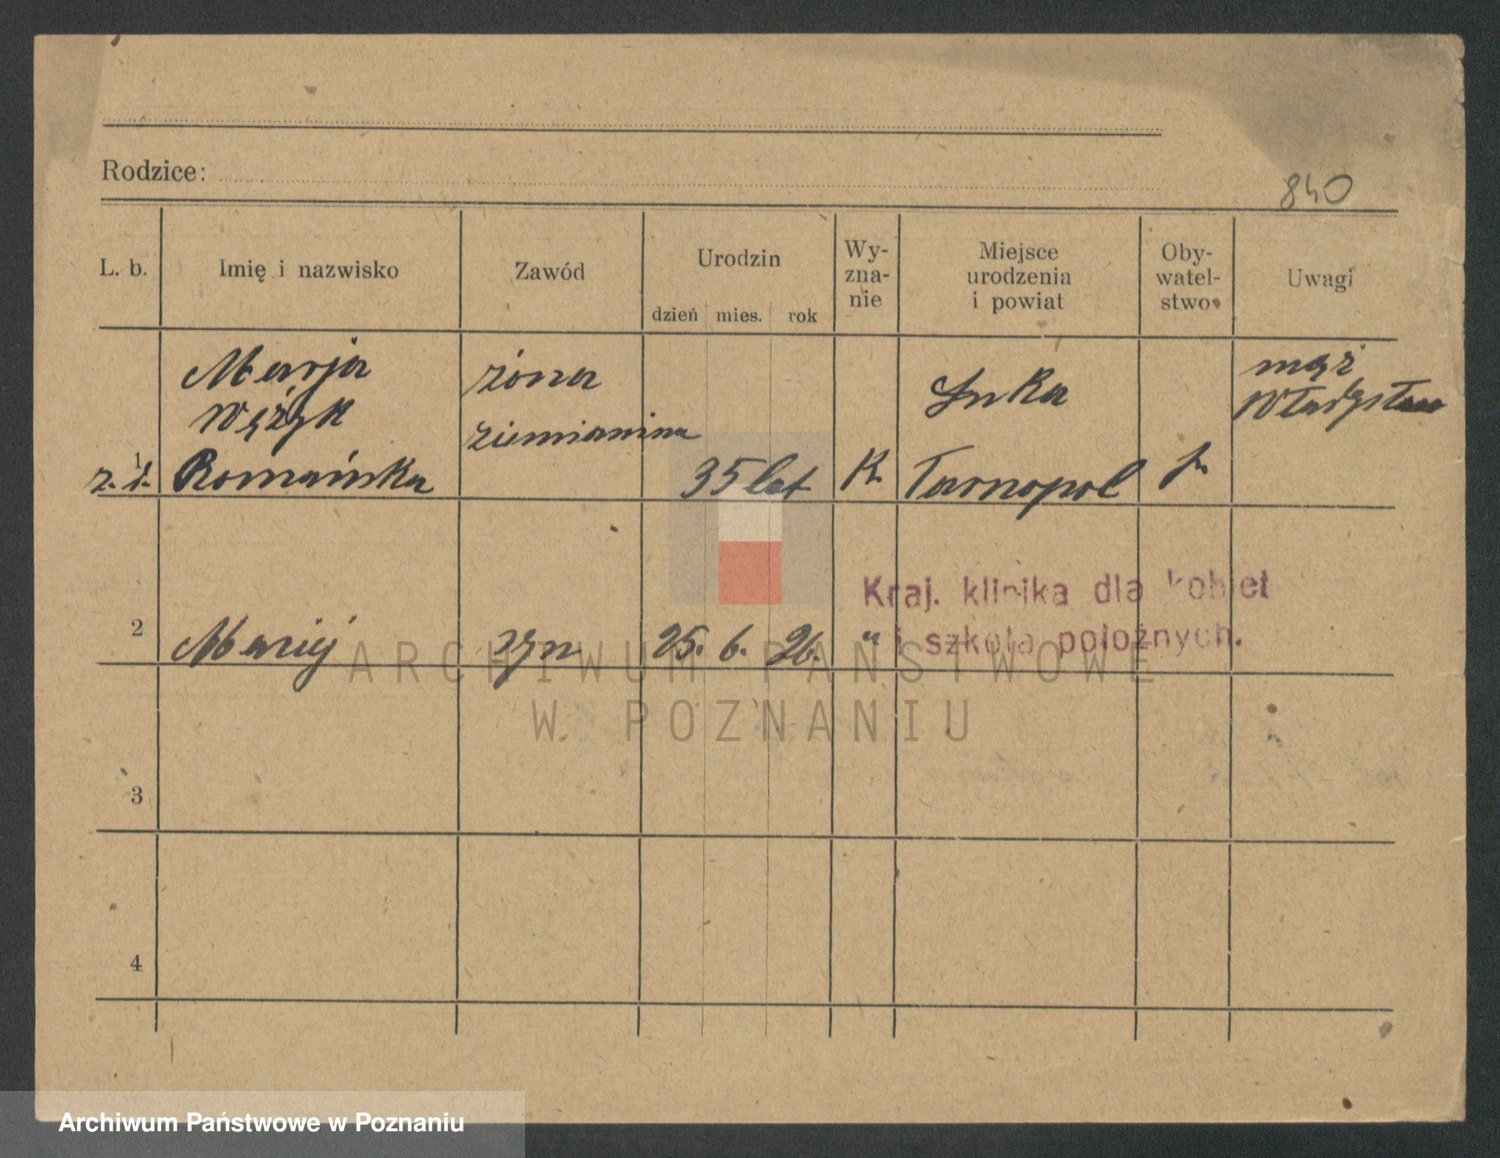 Rodzice:
840
L. b.
Imię i nazwisko
Zawód
Urodzin
dzień mies. rok
Wy-
zna-
nie
Miejsce
urodzenia
i powiat
Oby-
watel-
stwo
Uwagi
Marja
Wężyk
z. d. Romańska
1
żona
ziemianina
35 lat
K.
Łuka
Tarnopol
mąż
Władysław
2
Maciej
syn
25. 6. 26.
"
Kraj. klinika dla kobiet
i szkoła położnych.
3
4
ARCHIWUM PAŃSTWOWE
W POZNANIU
Archiwum Państwowe w Poznaniu